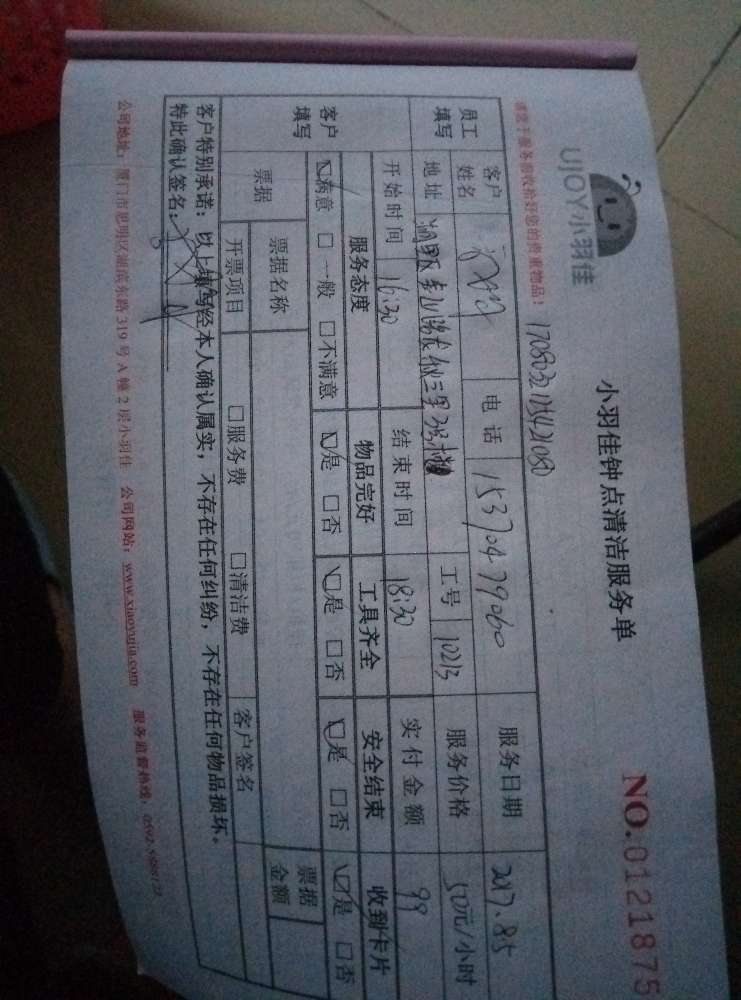 UJOY小羽佳
小羽佳钟点清洁服务单
NO.0121875
请您于服务前收拾好您的贵重物品!
员工填写 客户姓名 电话 15370479060 服务日期 2017.8.5
地址 工号 10213 服务价格 50元/小时
开始时间 16:30 结束时间 18:30 实付金额 99
客户填写 服务态度 物品完好 工具齐全 安全结束 收到卡片
☑满意 □一般 □不满意 ☑是 □否 ☑是 □否 ☑是 □否 ☑是 □否
票据 票据名称 票据金额
开票项目 □服务费 □清洁费 客户签名
客户特别承诺:以上填写经本人确认属实,不存在任何纠纷,不存在任何物品损坏。
特此确认签名:
公司地址:厦门市思明区湖滨东路319号A幢2层小羽佳 公司网站:www.xiaoyujia.com 服务监督热线: